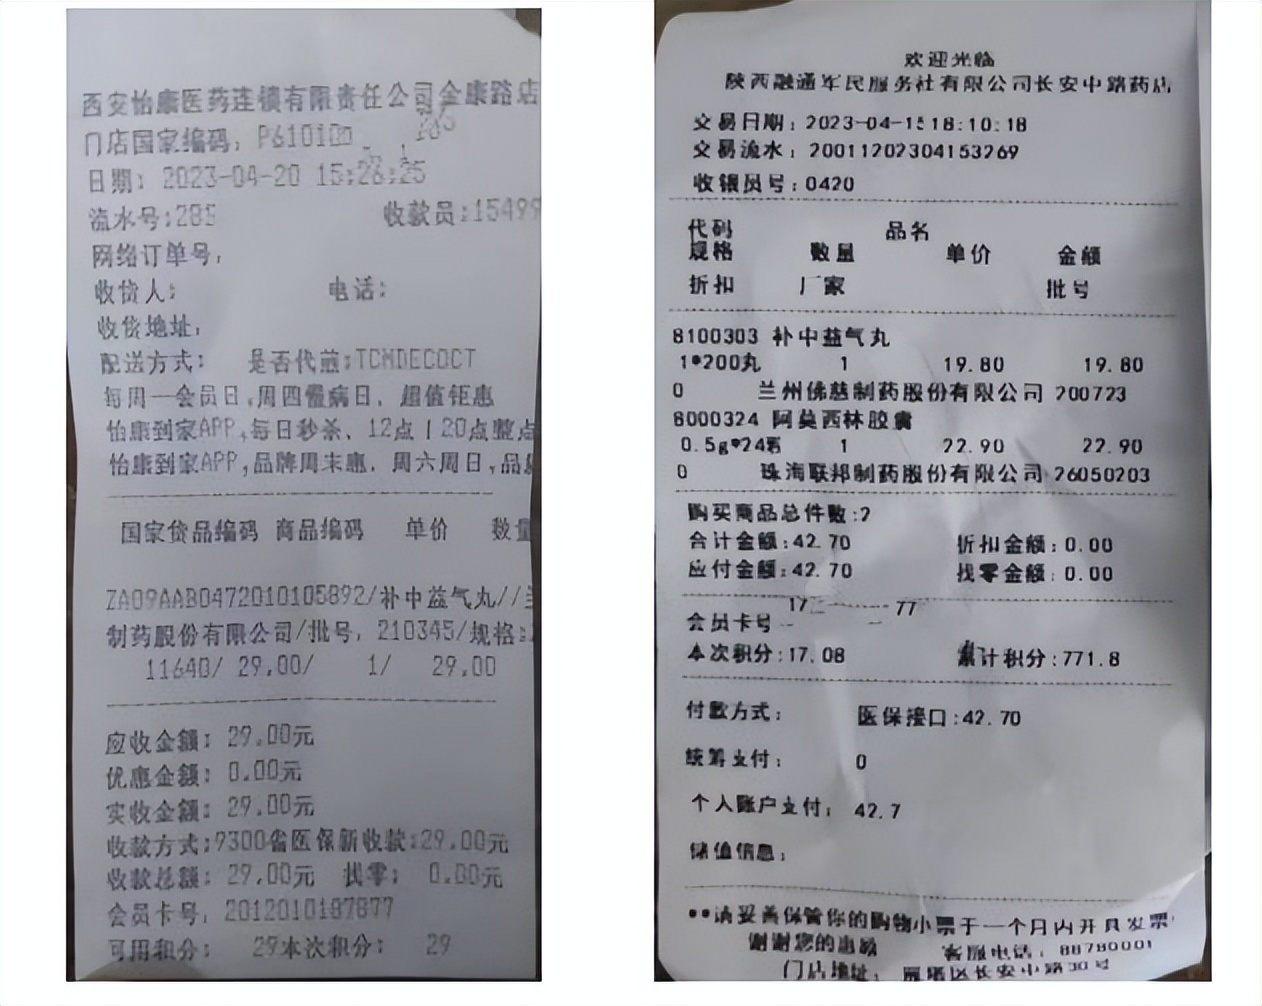 西安怡康医药连锁有限责任公司金康路店
门店国家编码: P610100
日期: 2023-04-20 15:26:25
流水号:285 收款员:15499
网络订单号:
收货人: 电话:
收货地址:
配送方式: 是否代煎:TCMDECOCT
每周一会员日,周四慢病日, 超值钜惠
怡康到家APP,每日秒杀, 12点|20点整点
怡康到家APP,品牌周末惠, 周六周日,品
国家货品编码 商品编码 单价 数量
ZA09AAB0472010105892/补中益气丸//
制药股份有限公司/批号: 210345/规格:
11640/ 29.00/ 1/ 29.00
应收金额: 29.00元
优惠金额: 0.00元
实收金额: 29.00元
收款方式:9300省医保新收款:29.00元
收款总额: 29.00元 找零: 0.00元
会员卡号: 2012010187877
可用积分: 29本次积分: 29
欢迎光临
陕西融通军民服务社有限公司长安中路药店
交易日期: 2023-04-15 18:10:18
交易流水: 20011202304153269
收银员号: 0420
代码 品名
规格 数量 单价 金额
折扣 厂家 批号
8100303 补中益气丸
1*200丸 1 19.80 19.80
0 兰州佛慈制药股份有限公司 200723
8000324 阿莫西林胶囊
0.5g*24粒 1 22.90 22.90
0 珠海联邦制药股份有限公司 26050203
购买商品总件数:2
合计金额:42.70 折扣金额:0.00
应付金额:42.70 找零金额:0.00
会员卡号 17 77
本次积分:17.08 累计积分:771.8
付款方式: 医保接口:42.70
统筹支付: 0
个人账户支付: 42.7
储值信息:
**请妥善保管你的购物小票于一个月内开具发票
谢谢您的惠顾 客服电话: 88780001
门店地址: 雁塔区长安中路30号